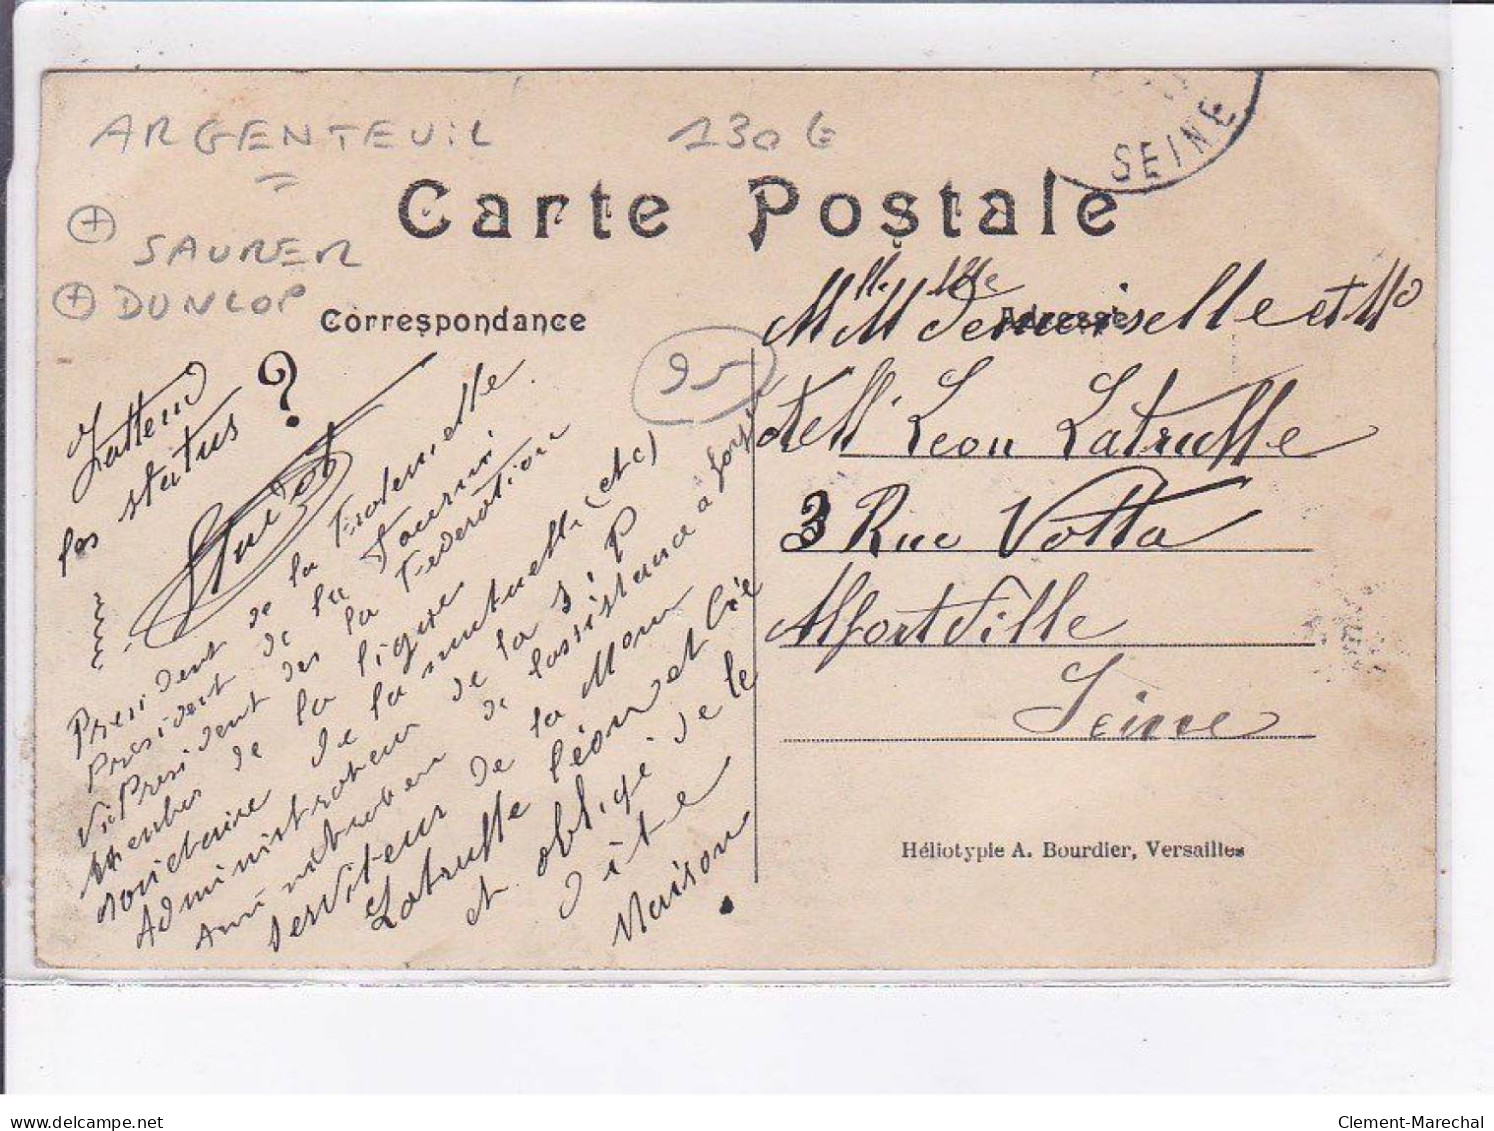 ARGENTEUIL
130 €
SEINE
Carte Postale
SAURER
DUNLOP
Correspondance
Adresse
95
J'attend
les statuts ?
President de la Fraternelle
President de la
Vi President des la Federation
Membre de la ligue
societaire de la mutuelle (etc)
Administrateur de la S.i.P
de lassistance a
serviteur de la Mon
Latruffe léon et Cie
et oblige de le
dite
Maison.
Mlle Demoiselle et Mo
Leon Latruffe
3 Rue Volta
Alfortville
Seine
Héliotypie A. Bourdier, Versailles
www.delcampe.net
Clement-Marechal